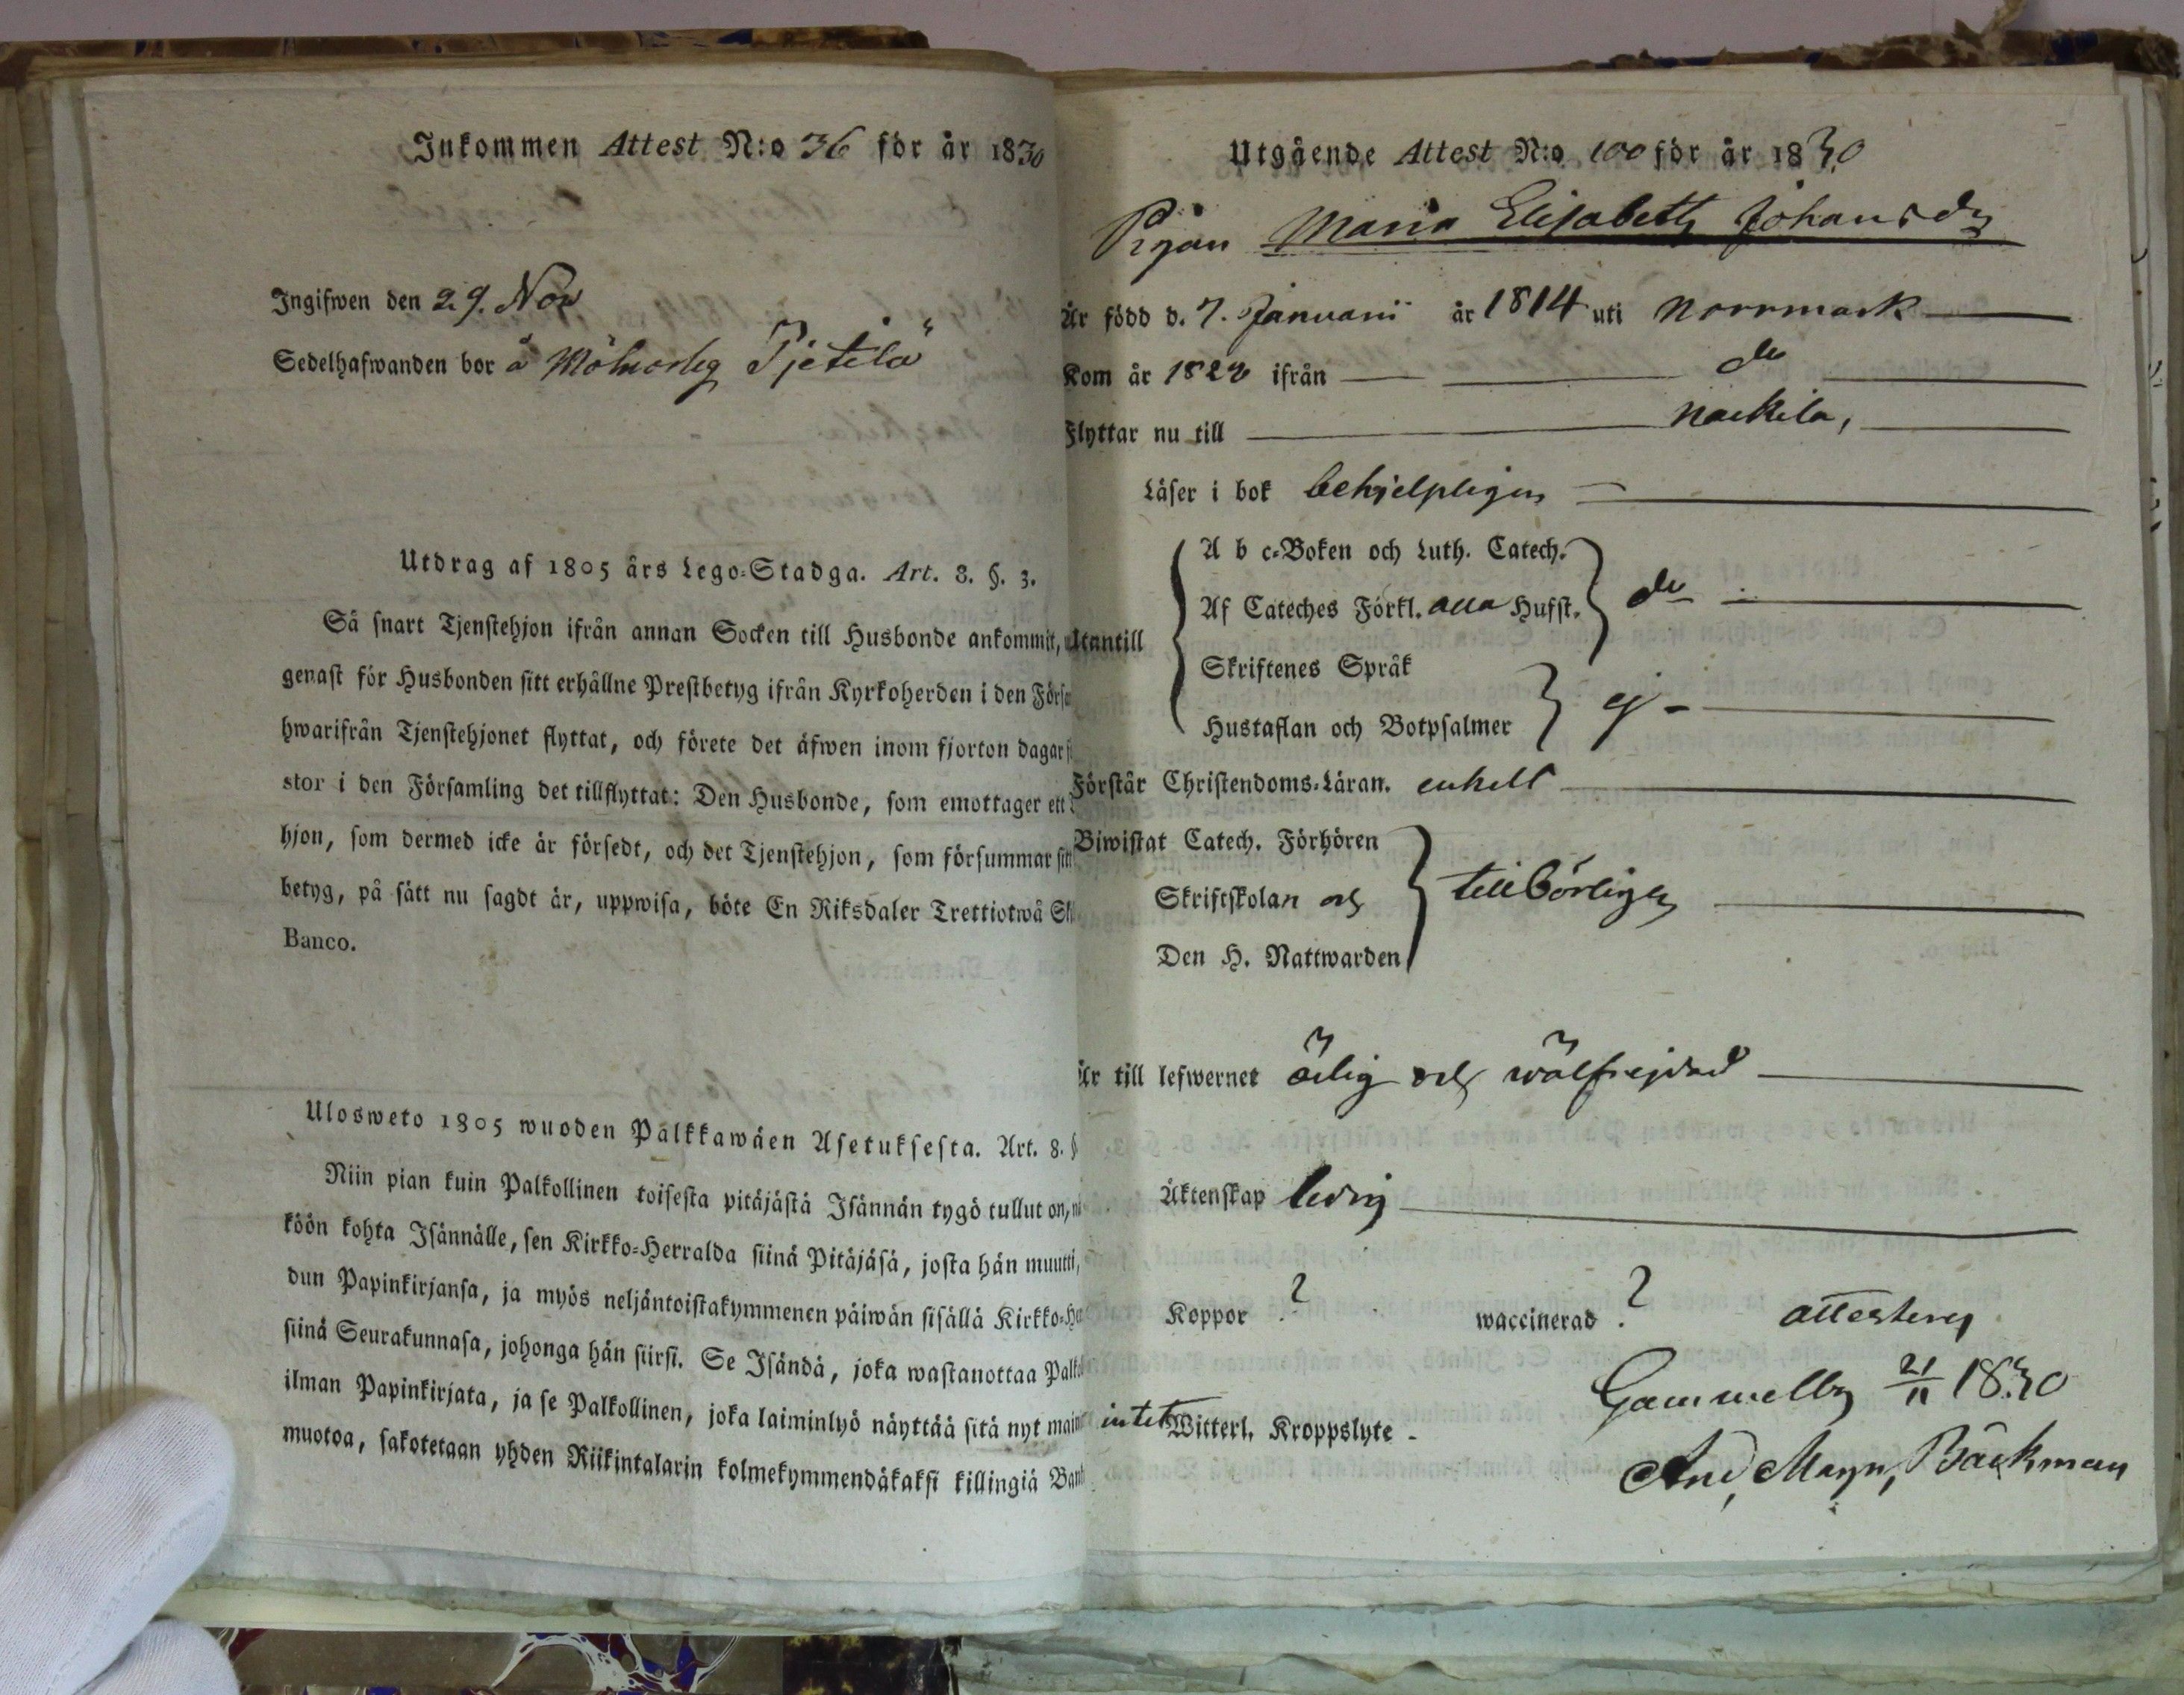 Inkommen Attest N:o 36 för år 1830
Ingifwen den 29. Nov
Sedelhafwanden bor å Tjetilä
Utdrag af 1805 års Lego-Stadga. Art. 8. §. 3.
Så snart Tjenstehjon ifrån annan Socken till Husbonde ankommit,
genast för Husbonden sitt erhållne Prestbetyg ifrån Kyrkoherden i den
hwarifrån Tjenstehjonet flyttat, och förete det äfwen inom fjorton dagar
stor i den Församling det tillflyttat: Den Husbonde, som emottager ett
hjon, som dermed icke är försedt, och det Tjenstehjon, som försummar
betyg, på sätt nu sagdt är, uppwisa, böte En Riksdaler Trettiotwå
Banco.
Ulosweto 1805 wuoden Palkkawäen Asetuksesta. Art. 8.
Niin pian kuin Palkollinen toisesta pitäjästä Isännän tygö tullut on,
köön kohta Isännälle, sen Kirkko-Herralda siinä Pitäjäsä, josta hän muutti,
dun Papinkirjansa, ja myös neljäntoistakymmenen päiwän sisällä
siinä Seurakunnasa, johonga hän siirsi. Se Isändä, joka wastanottaa
ilman Papinkirjata, ja se Palkollinen, joka laiminlyö näyttää sitä nyt
muotoa, sakotetaan yhden Riikintalarin kolmekymmendäkaksi killingiä
Utgående Attest N:o 100 för år 1830
Pigan Maria Elisabeth Johansdr
Är född d. 7. Januarii år 1814 uti Norrmark
Kom år ifrån do
Flyttar nu till Nackila,
Läser i bok behjelpligen
A b c-Boken och Luth. Catech.
Af Cateches Förkl. alla Hufst. do
Utantill
Skriftenes Språk
Hustaflan och Botpsalmer ej
Förstår Christendoms-Läran. enkelt
Biwistat Catech. Förhören
Skriftskolan och tillbörligen
Den H. Nattwarden
Är till lefwernet ärlig och wälfrejdad
Äktenskap ledig
Koppor ? waccinerad ? attesterar
Gammelby 21/11 1830
intet Witterl. Kroppslyte
And. Magn. Bäckman